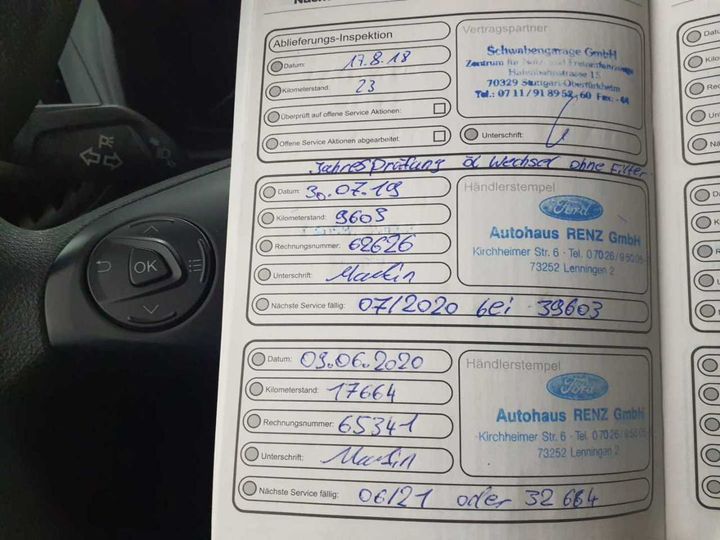 Ablieferungs-Inspektion
Datum: 17.8.18
Kilometerstand: 23
Überprüft auf offene Service Aktionen:
Offene Service Aktionen abgearbeitet:
Vertragspartner
Schwabengarage GmbH
Zentrum für Nutz- und Freizeitfahrzeuge
Hafenbahnstrasse 15
70329 Stuttgart-Obertürkheim
Tel.: 07 11/91 89 52-60 Fax: -64
Unterschrift:
Jahresprüfung öl Wechsel ohne Filter
Datum: 30.07.19
Kilometerstand: 9603
Rechnungsnummer: 62626
Unterschrift:
Nächste Service fällig: 07/2020 bei 39603
Händlerstempel
Ford
Autohaus RENZ GmbH
Kirchheimer Str. 6 · Tel. 0 70 26/9 50 05-
73252 Lenningen 2
Datum: 09.06.2020
Kilometerstand: 17664
Rechnungsnummer: 65341
Unterschrift:
Nächste Service fällig: 06/21 oder 32664
Händlerstempel
Ford
Autohaus RENZ GmbH
Kirchheimer Str. 6 · Tel. 0 70 26/9 50 05-
73252 Lenningen 2
OK